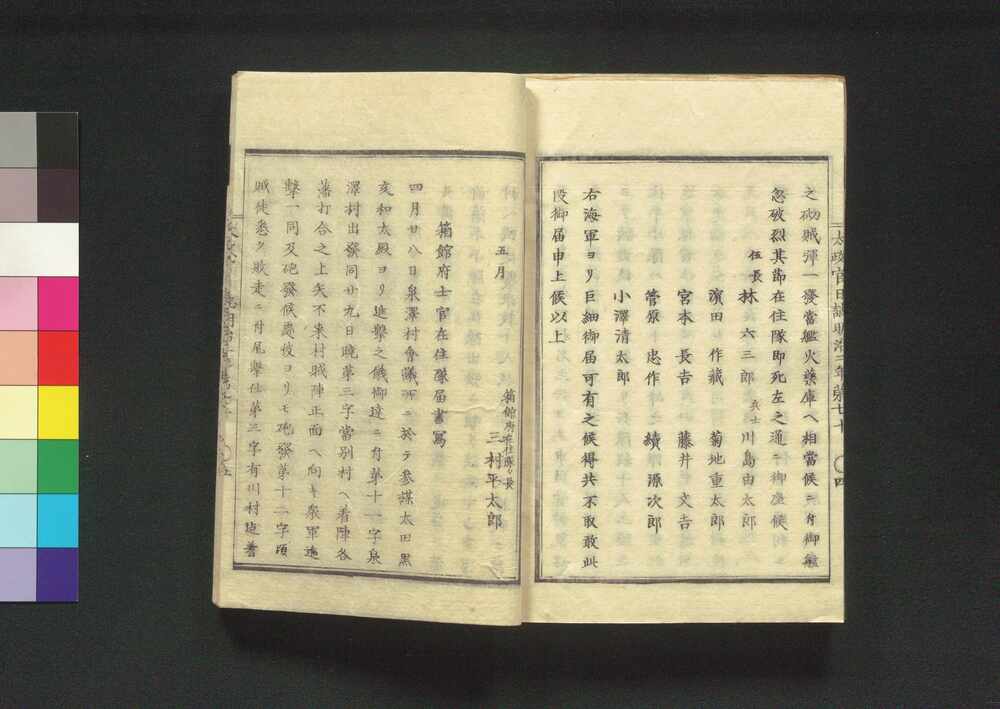 太政官日誌明治二年第七十 〇四
之砌賊彈一發當艦火藥庫ヘ相當候ニ付御艦
忽破烈其節在住隊即死左之通ニ御座候
伍長 林 六三郎 兵士 川島由太郎
濱田 作藏 菊地重太郎
宮本 長吉 藤井 文吉
菅原 忠作 績 源次郎
小澤清太郎
右海軍ヨリ巨細御届可有之候得共不取敢此
段御届申上候以上
箱館府在住隊々長
五月 三村平太郎
箱館府士官在住隊届書寫
四月廿八日泉澤村會議所ニ於テ參謀太田黒
亥和太殿ヨリ進撃之儀御達ニ付第十一字泉
澤村出發同廿九日曉第三字當別村ヘ着陣各
藩打合之上矢不來村賊陣正面ヘ向キ衆軍進
撃一同及砲發候處彼ヨリモ砲發第十二字頃
賊徒悉ク敗走ニ付尾撃仕第三字有川村迠着